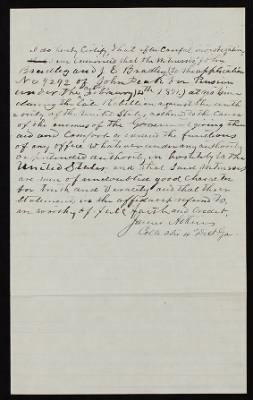 I do hereby Certify, that after Careful investigation
I am convinced that the Witnesses
Bradley and J. E. Bradley to the application
No 9292 of John for Pension
under the Act of Feb'y 14th 1871 at no time
during the late Rebellion against the auth
ority of the United States adhered to the Cause
of the enemies of the Government giving them
aid and Comfort or exercised the functions
of any office whatever under any authority
or pretended authority in hostility to the
United States and that said Witnesses
are men of undoubted good character
for truth and Veracity and that their
Statements in the affidavit referred to,
are worthy of full faith and Credit.
James Atkins
Collector 4 Dist Ga